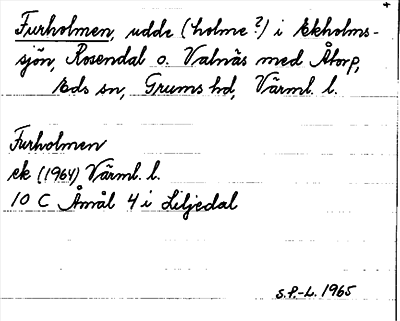 Furholmen, udde (holme?) i Ekholms-
sjön, Rosendal o. Valnäs med Åtorp,
Eds sn, Grums hd, Värml. l.
Furholmen
ek (1964) Värml. l.
10 C Åmål 4 i Liljedal
S.P.-L. 1965